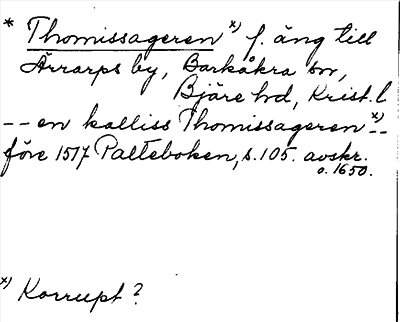 * Thomissageren x) f. äng till
Ärrarps by, Barkåkra sn,
Bjäre hd, Krist. l
-- en kalliss Thomissageren x) --
före 1517 Palteboken, s. 105. avskr.
o. 1650.
x) Korrupt?